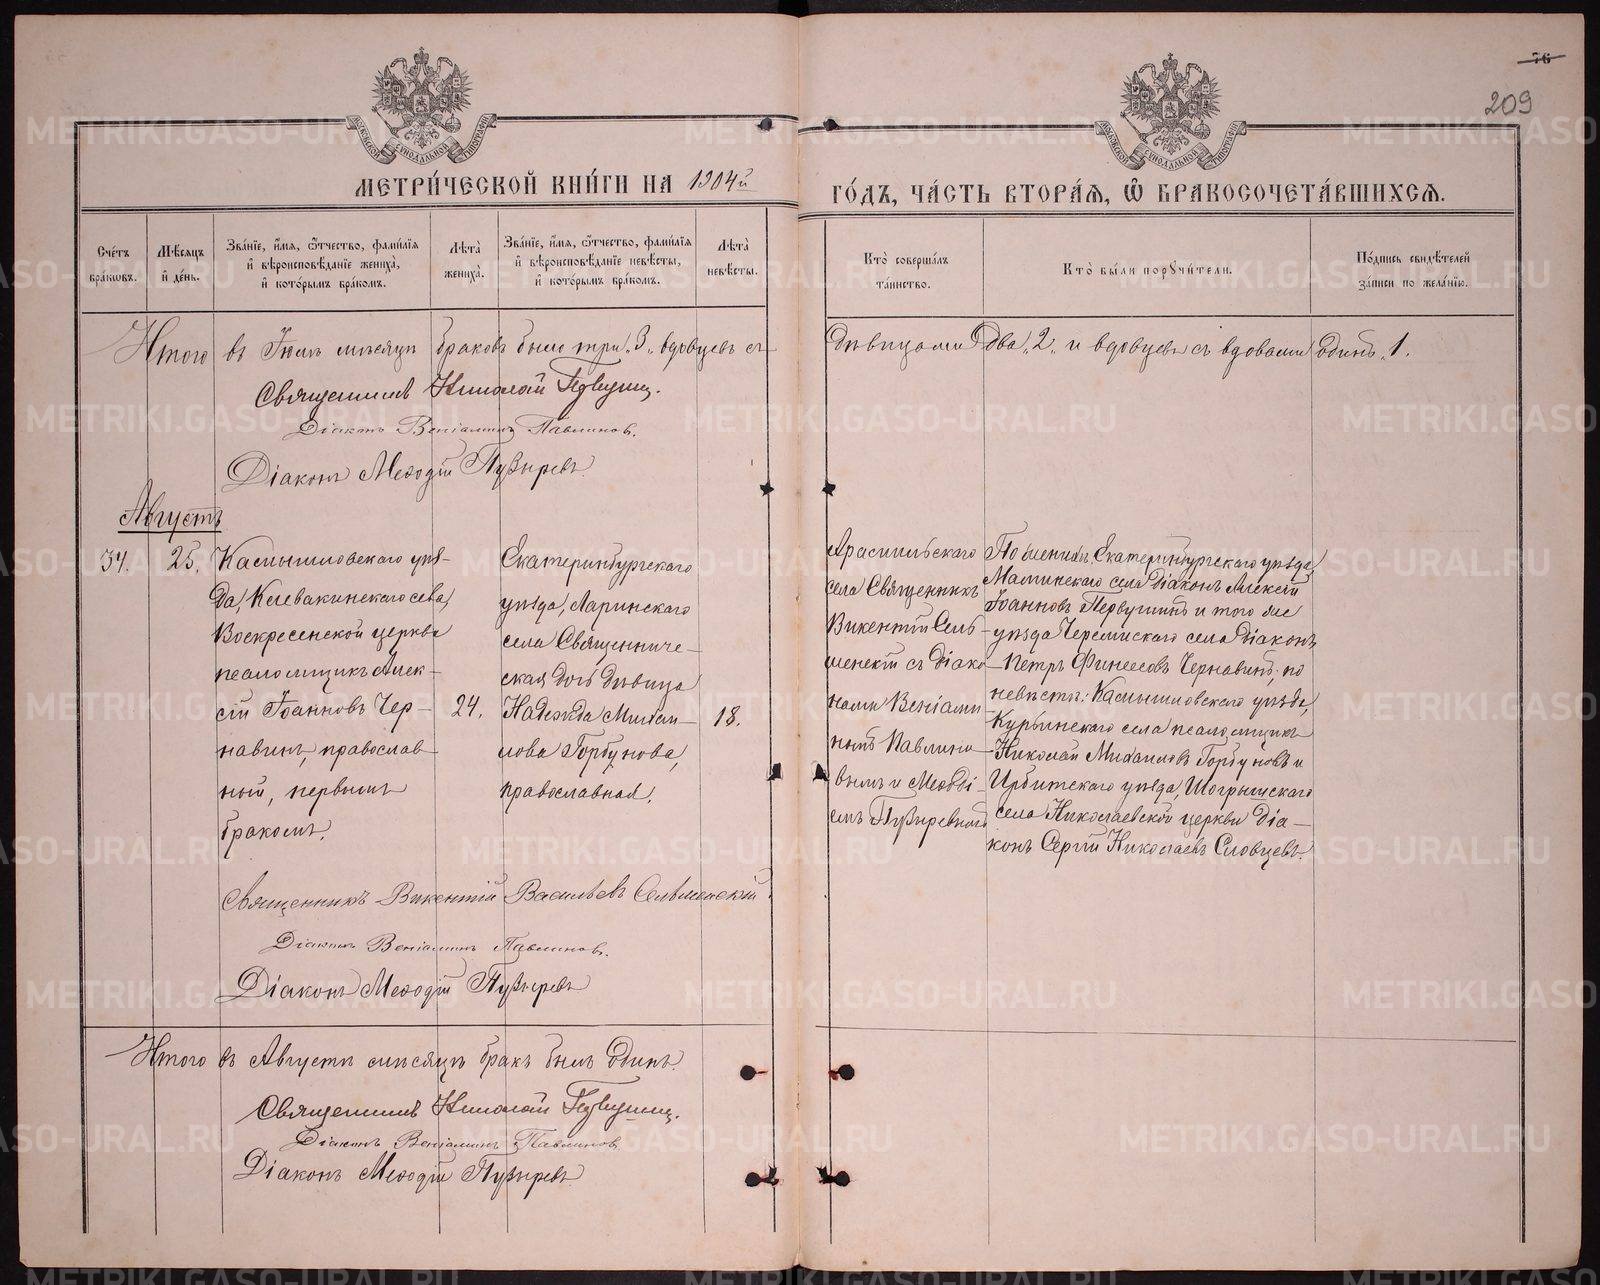 76
209
МЕТРИ́ЧЕСКОЙ КНИ́ГИ НА 1904й
ГО́ДЪ, ЧА́СТЬ ВТОРА́Я, Ѽ БРАКОСОЧЕТА́ВШИХСЯ.
Сче́тъ бра́ковъ.
Мѣ́сяцъ и҆ де́нь.
Зва́нїе, и҆́мя, ѻ҆́тчество, фами́лїя и҆ вѣроисповѣ́данїе жениха̀, и҆ кото́рымъ бра́комъ.
Лѣ́та жениха̀.
Зва́нїе, и҆́мя, ѻ҆́тчество, фами́лїя и҆ вѣроисповѣ́данїе невѣ́сты, и҆ кото́рымъ бра́комъ.
Лѣ́та невѣ́сты.
Кто̀ соверша́лъ та́инство.
Кто̀ бы́ли порꙋчи́тели.
По́дпись свидѣ́телей за́писи по жела́нїю.
Итого въ Іюлѣ мѣсяцѣ браковъ было три „3„ вдовцевъ съ
дѣвицами два „2„ и вдовцевъ съ вдовами одинъ „1.
Священникъ Николай
Діаконъ Веніаминъ Павлиновъ.
Діаконъ Меѳодій Пузыревъ
Августъ
34.
25.
Камышловскаго уѣз-
да, Клевакинскаго села,
Воскресенской церкви
псаломщикъ Алек-
сій Іоанновъ Чер-
навинъ, православ-
ный, первымъ
бракомъ.
24.
Екатеринбургскаго
уѣзда, Ларинскаго
села Священниче-
ская дочь дѣвица
Надежда Михаи-
лова Горбунова,
православная.
18.
Арамильскаго
села Священникъ
Викентій Сель-
менскій съ діако-
нами Веніами-
номъ Павлино-
вымъ и Меѳоді-
емъ Пузыревымъ
По женихѣ: Екатеринбургскаго уѣзда,
Маминскаго села діаконъ Алексій
Іоанновъ Первушинъ и того же
уѣзда Черемисскаго села діаконъ
Петръ Финеесовъ Чернавинъ; по
невѣстѣ: Камышловскаго уѣзда,
Курьинскаго села псаломщикъ
Николай Михаиловъ Горбуновъ и
Ирбитскаго уѣзда, Шогрышскаго
села Николаевской церкви діа-
конъ Сергій Николаевъ Словцевъ.
Священникъ Викентій Васильевъ Сельменскій
Діаконъ Веніаминъ Павлиновъ.
Діаконъ Меѳодій Пузыревъ
Итого въ Августѣ мѣсяцѣ бракъ былъ одинъ.
Священникъ Николай
Діаконъ Веніаминъ Павлиновъ
Діаконъ Меѳодій Пузыревъ
METRIKI.GASO-URAL.RU